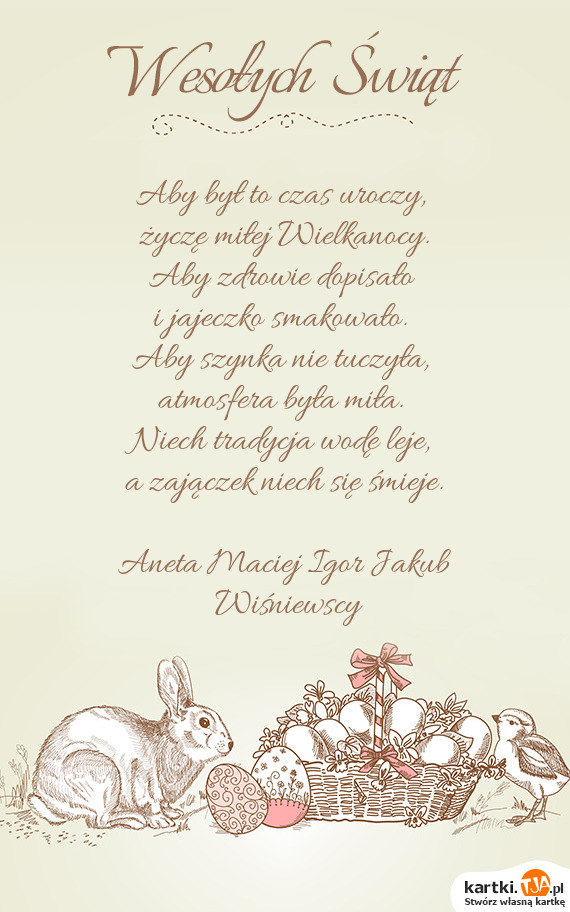 Wesołych Świąt
Aby był to czas uroczy,
życzę miłej Wielkanocy.
Aby zdrowie dopisało
i jajeczko smakowało.
Aby szynka nie tuczyła,
atmosfera była miła.
Niech tradycja wodę leje,
a zajączek niech się śmieje.
Aneta Maciej Igor Jakub
Wiśniewscy
kartki.TJA.pl
Stwórz własną kartkę